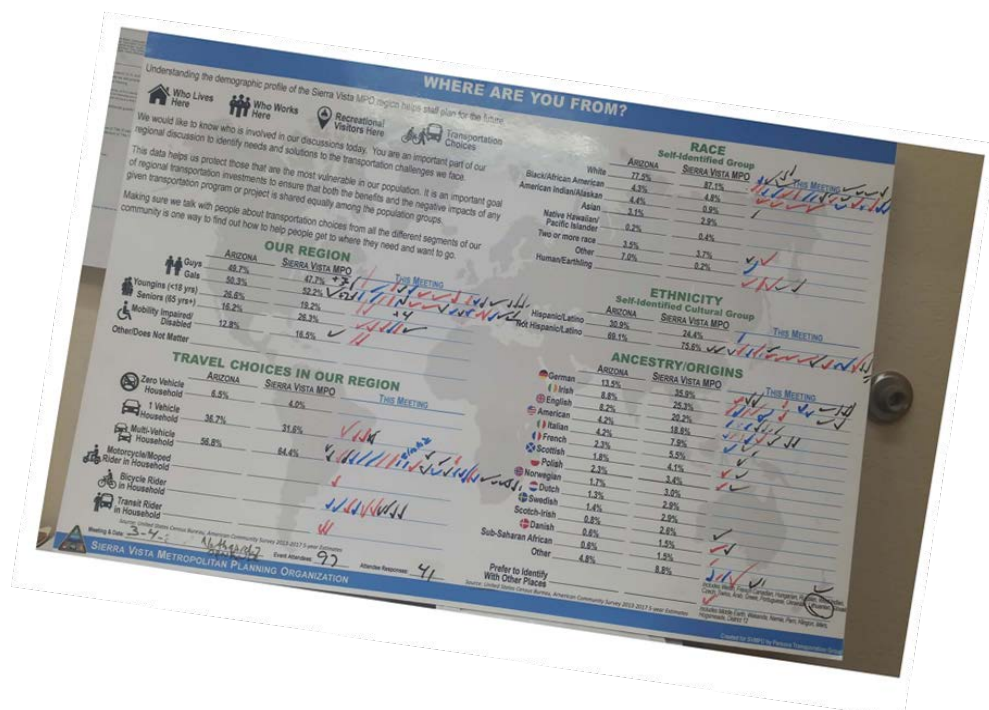 WHERE ARE YOU FROM?
Understanding the demographic profile of the Sierra Vista MPO region helps staff plan for the future.
Who Lives Here
Who Works Here
Recreational Visitors Here
Transportation Choices
We would like to know who is involved in our discussions today. You are an important part of our
regional discussion to identify needs and solutions to the transportation challenges we face.
This data helps us protect those that are the most vulnerable in our population. It is an important goal
of regional transportation investments to ensure that both the benefits and the negative impacts of any
given transportation program or project is shared equally among the population groups.
Making sure we talk with people about transportation choices from all the different segments of our
community is one way to find out how to help people get to where they need and want to go.
OUR REGION
ARIZONA SIERRA VISTA MPO THIS MEETING
Guys 49.7% 47.7% +7
Gals 50.3% 52.2%
Youngins (<18 yrs) 26.6% 19.2%
Seniors (65 yrs+) 16.2% 26.3% +4
Mobility Impaired/
Disabled 12.8% 16.5%
Other/Does Not Matter
TRAVEL CHOICES IN OUR REGION
ARIZONA SIERRA VISTA MPO THIS MEETING
Zero Vehicle
Household 6.5% 4.0%
1 Vehicle
Household 36.7% 31.6%
Multi-Vehicle
Household 56.8% 64.4%
Motorcycle/Moped
Rider in Household
Bicycle Rider
in Household
Transit Rider
in Household
Source: United States Census Bureau, American Community Survey 2013-2017 5-year Estimates
Meeting & Date: 3-4-
Event Attendees: 92
Attendee Responses: 41
SIERRA VISTA METROPOLITAN PLANNING ORGANIZATION
RACE
Self-Identified Group
ARIZONA SIERRA VISTA MPO THIS MEETING
White 77.5% 87.1%
Black/African American 4.3% 4.8%
American Indian/Alaskan 4.4% 0.9%
Asian 3.1% 2.9%
Native Hawaiian/
Pacific Islander 0.2% 0.4%
Two or more race 3.5% 3.7%
Other 7.0% 0.2%
Human/Earthling
ETHNICITY
Self-Identified Cultural Group
ARIZONA SIERRA VISTA MPO THIS MEETING
Hispanic/Latino 30.9% 24.4%
Not Hispanic/Latino 69.1% 75.6%
ANCESTRY/ORIGINS
ARIZONA SIERRA VISTA MPO THIS MEETING
German 13.5% 35.9%
Irish 8.8% 25.3%
English 8.2% 20.2%
American 4.2% 18.6%
Italian 4.2% 7.9%
French 2.3% 5.5%
Scottish 1.8% 4.1%
Polish 2.3% 3.4%
Norwegian 1.7% 3.0%
Dutch 1.3% 2.9%
Swedish 1.4% 2.9%
Scotch-Irish 0.8% 2.6%
Danish 0.6% 1.5%
Sub-Saharan African 0.6% 1.5%
Other 4.8% 8.8%
Prefer to Identify
With Other Places
Source: United States Census Bureau, American Community Survey 2013-2017 5-year Estimates
Created for SVMPO by Parsons Transportation Group